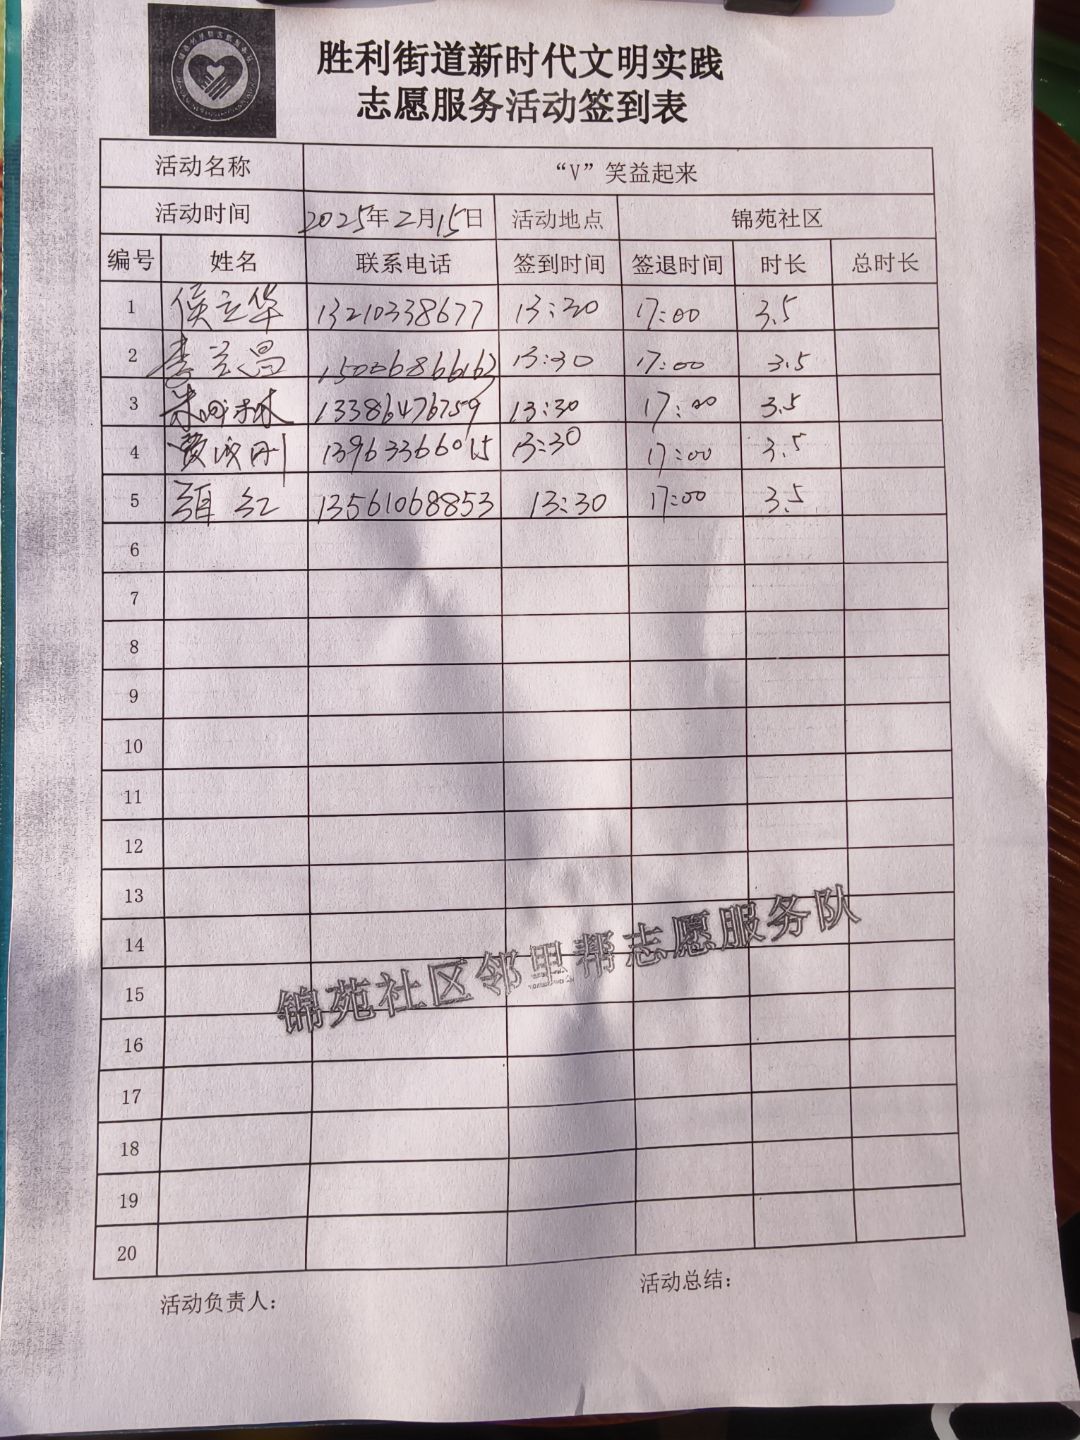 胜利街道新时代文明实践
志愿服务活动签到表
活动名称 “V”笑益起来
活动时间 2025年2月15日 活动地点 锦苑社区
编号 姓名 联系电话 签到时间 签退时间 时长 总时长
1 侯立华 13210338677 13:30 17:00 3.5
2 李兰昌 15006866163 13:30 17:00 3.5
3 13386476759 13:30 17:00 3.5
4 贾成刚 13963366015 13:30 17:00 3.5
5 红 13561068853 13:30 17:00 3.5
6
7
8
9
10
11
12
13
14
15
16
17
18
19
20
锦苑社区邻里帮志愿服务队
活动负责人： 活动总结：